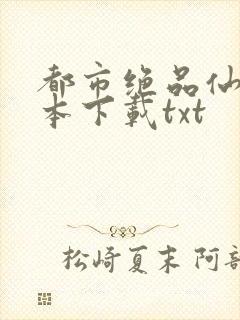 都市绝品仙
本下载txt
松崎夏末 阿部